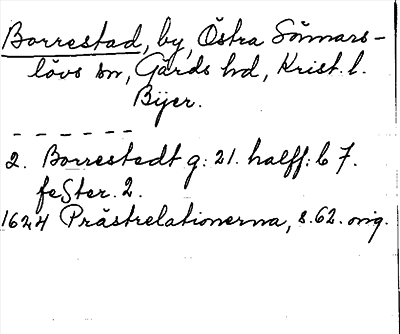 Borrestad, by, Östra Sönnars-
lövs sn, Gärds hd, Krist. l.
Byer.
2. Borrestedt g: 21. halff: b 7.
feSter. 2.
1624 Prästrelationerna, s. 62. orig.